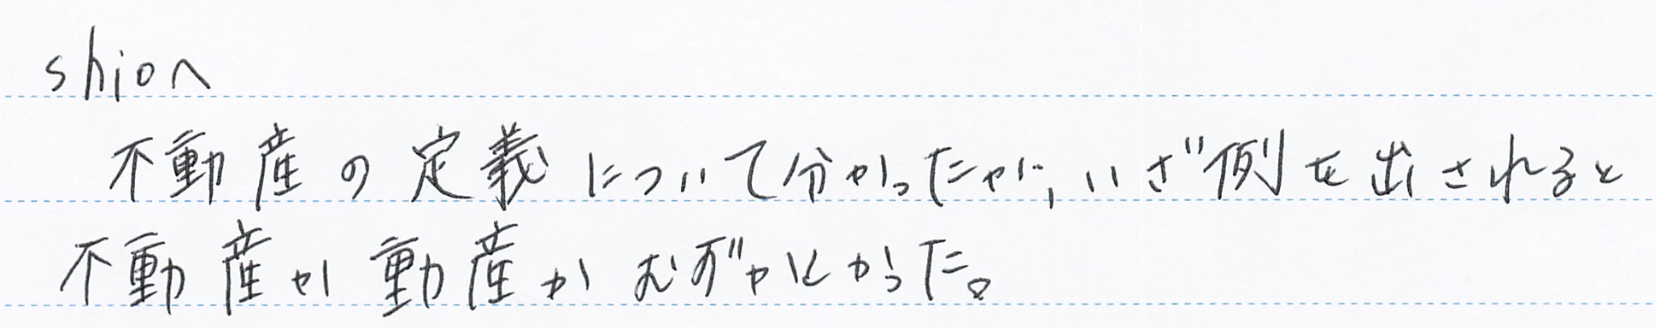 shionへ
不動産の定義について分かったが、いざ例を出されると
不動産か動産かむずかしかった。